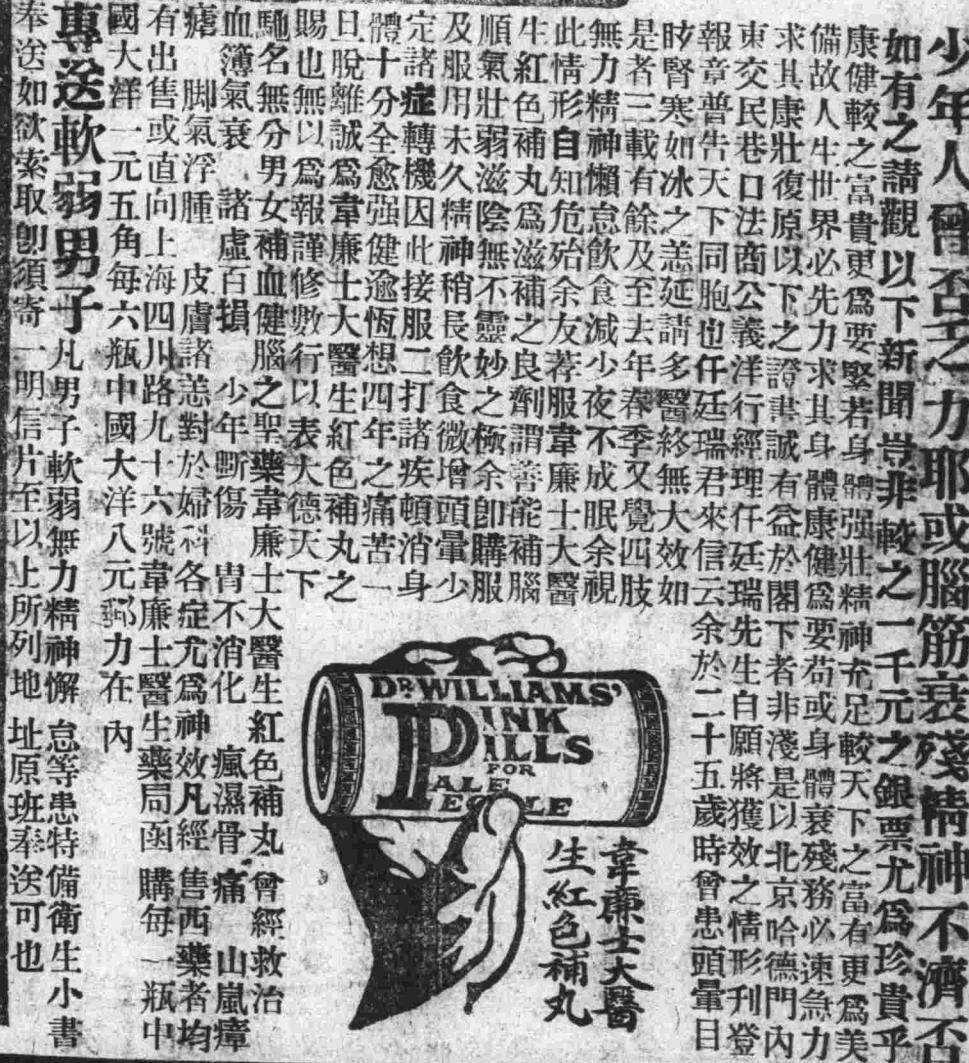 少年人曾否乏力耶或腦筋衰殘精神不濟否
如有之請觀以下新聞豈非較之一千元之銀票尤爲珍貴乎
康健較之富貴更爲要緊若身體强壯精神充足較天下之富有更爲美
備故人生世界必先力求其身體康健爲要苟或身體衰殘務必速急力
求其康壯復原以下之證書誠有益於閣下者非淺是以北京哈德門內
東交民巷口法商公義洋行經理仟廷瑞先生自願將獲效之情形刊登
報章普告天下同胞也仟廷瑞君來信云余於二十五歲時曾患頭暈目
眩腎寒如冰之恙延請多醫終無大效如
是者三載有餘及至去年春季又覺四肢
無力精神懶怠飲食減少夜不成眠余視
此情形自知危殆余友荐服韋廉士大醫
生紅色補丸爲滋補之良劑謂善能補腦
順氣壯弱滋陰無不靈妙之極余卽購服
及服用未久精神稍長飲食微增頭暈少
定諸症轉機因此接服二打諸疾頓消身
體十分全愈强健逾恆想四年之痛苦一
旦脫離誠爲韋廉士大醫生紅色補丸之
賜也無以爲報謹修數行以表大德天下
馳名無分男女補血健腦之聖藥韋廉士大醫生紅色補丸曾經救治
血簿氣衰 諸虛百損 少年斲傷 胃不消化 瘋濕骨痛 山嵐瘴
瘧 脚氣浮腫 皮膚諸恙對於婦科各症尤爲神效凡經售西藥者均
有出售或直向上海四川路九十六號韋廉士醫生藥局函購每一瓶中
國大洋一元五角每六瓶中國大洋八元郵力在內
專送軟弱男子凡男子軟弱無力精神懈怠等患特備衛生小書
奉送如欲索取卽須寄一明信片至以上所列地址原班奉送可也
DR WILLIAMS'
PINK
PILLS
FOR
PALE
PEOPLE
韋廉士大醫
生紅色補丸